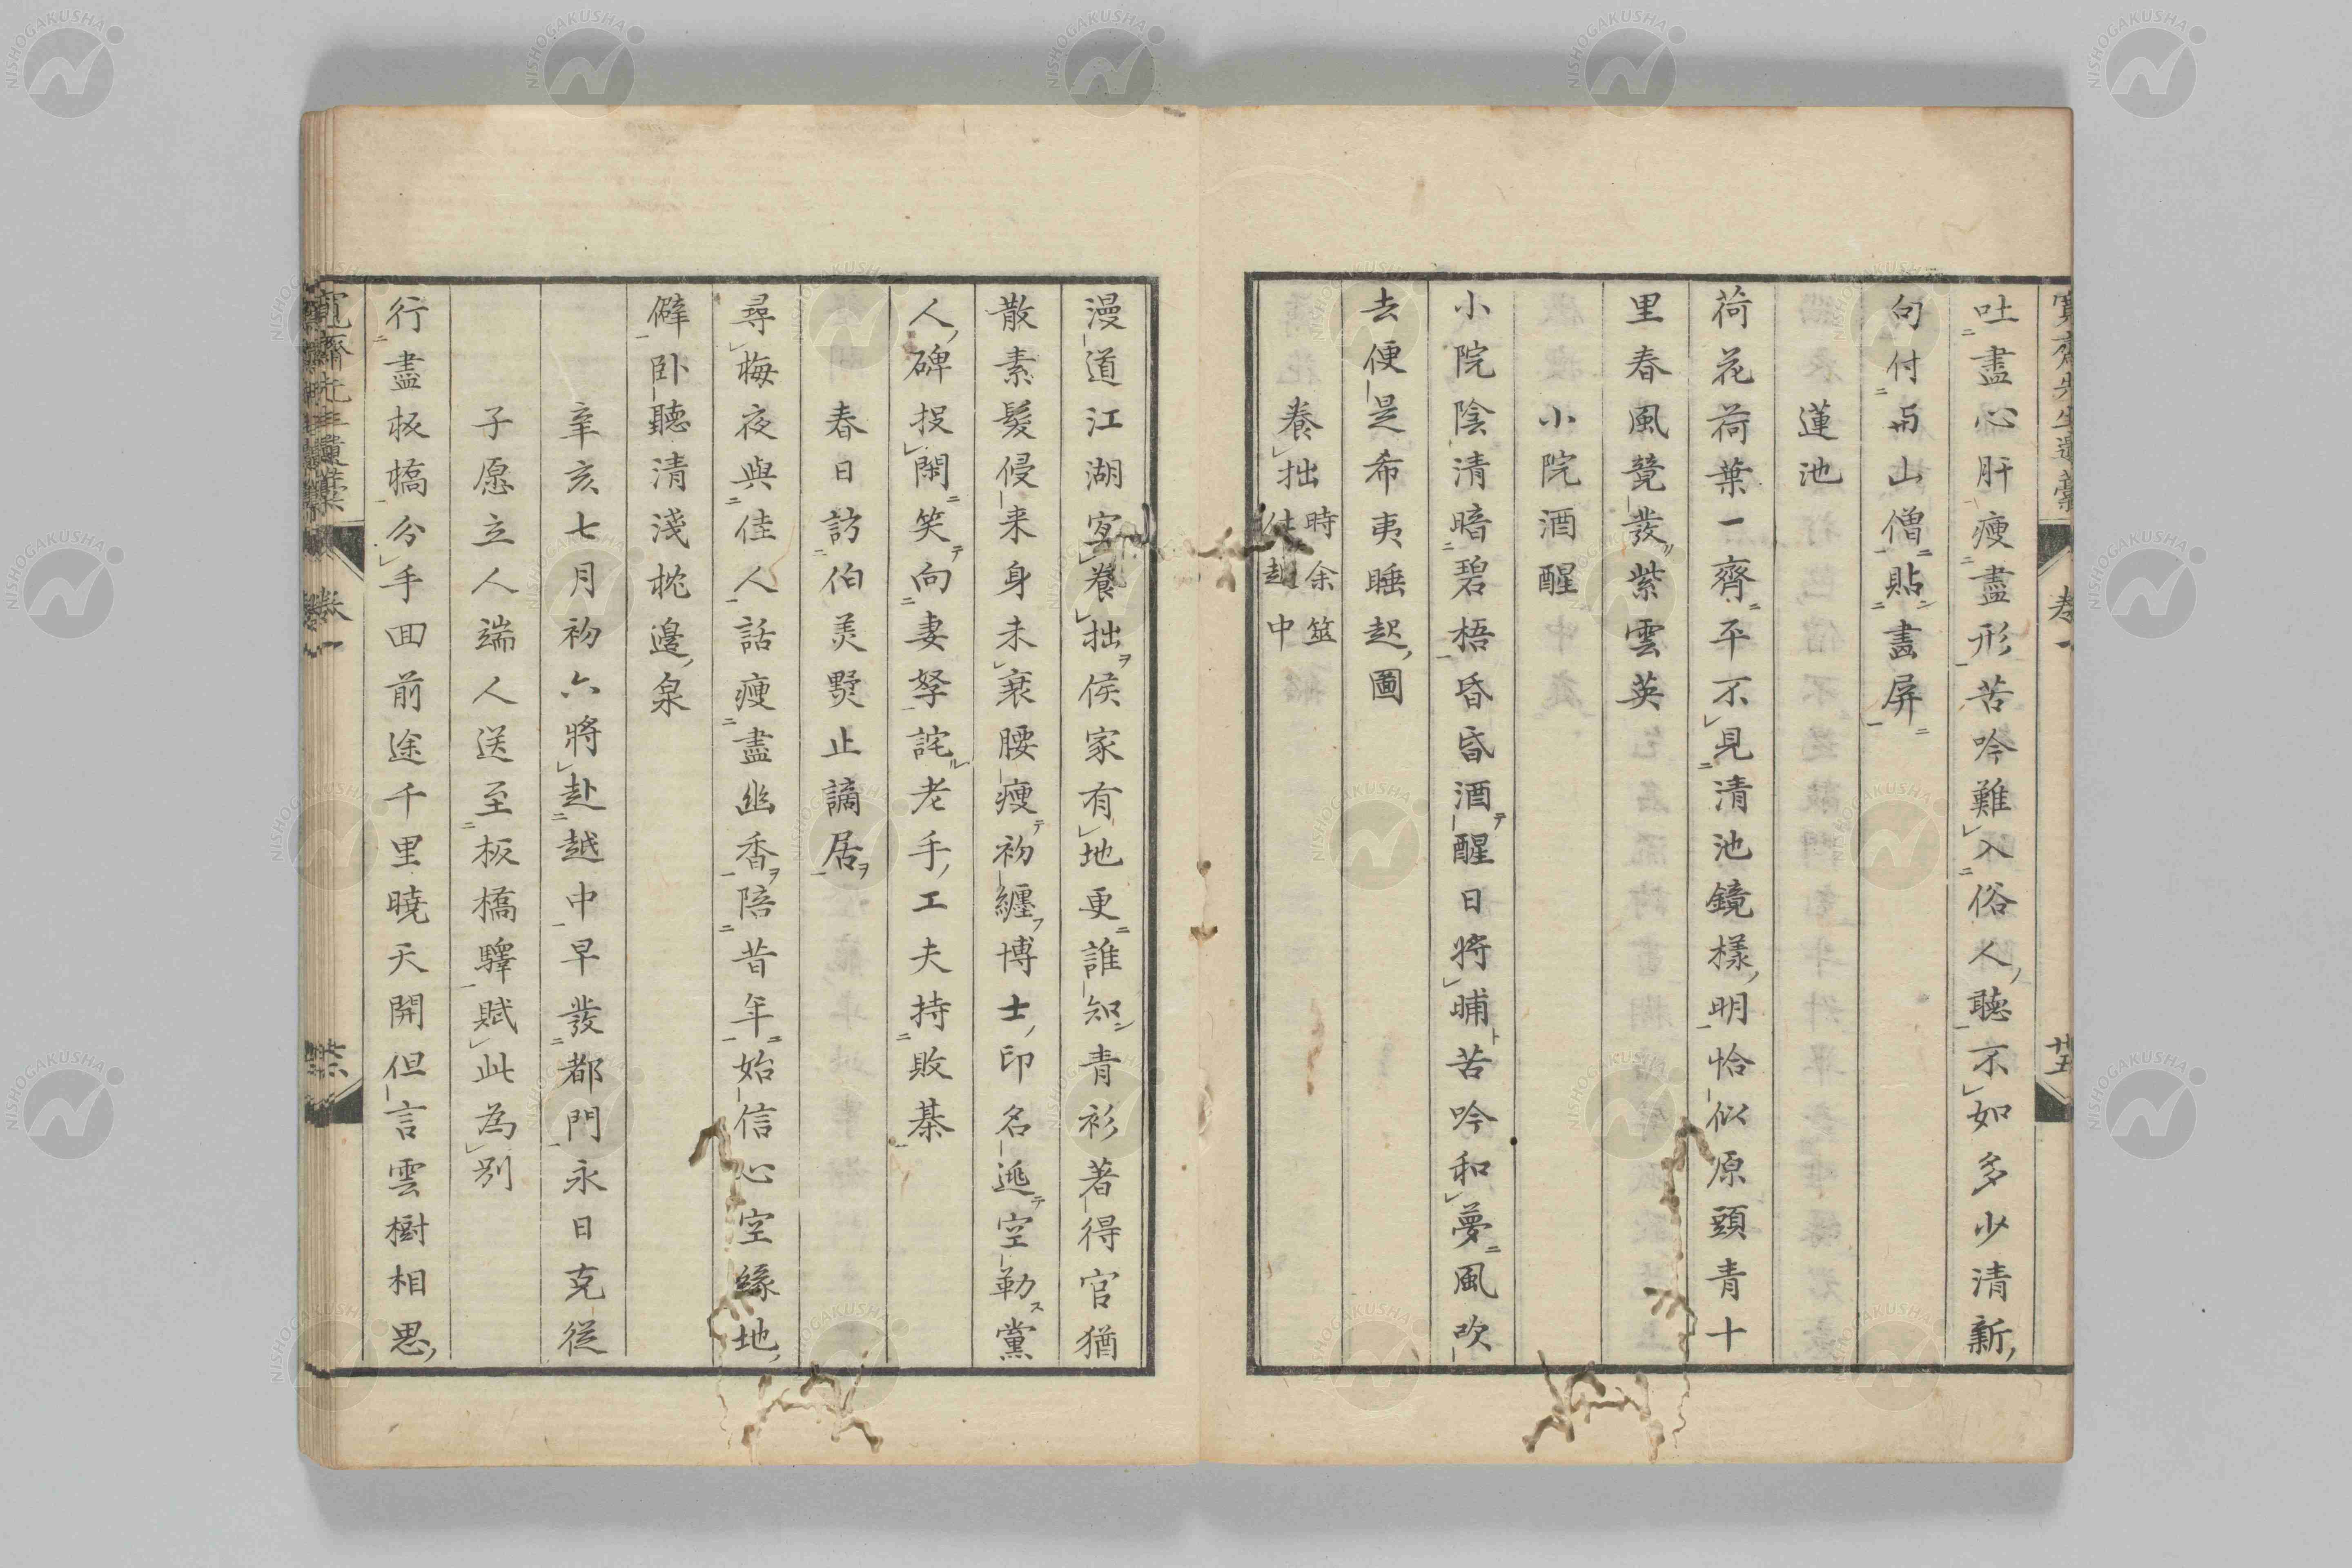 寬齋先生遺藁 卷一 廿五
吐盡心肝瘦盡形苦吟難入俗人聽不如多少清新
句付与山僧貼畫屏
蓮池
荷花荷葉一齊平不見清池鏡樣明恰似原頭青十
里春風競發紫雲英
小院酒醒
小院陰清暗碧梧昏昏酒醒日將晡苦吟和夢風吹
去便是希夷睡起圖
養拙
時余筮
仕越中
漫道江湖寬養拙侯家有地更誰知青衫著得官猶
散素髮侵來身未衰腰瘦初纏博士印名逃空勒黨
人碑投閑笑向妻孥詫老手工夫持敗棊
春日訪伯美墅止謫居
尋梅夜與佳人話瘦盡幽香陪昔年始信心空緣地
僻卧聽清淺枕邊泉
辛亥七月初六將赴越中早發都門永日克從
子愿立人端人送至板橋驛賦此為別
行盡板橋分手回前途千里曉天開但言雲樹相思
寬齋先生遺藁 卷一